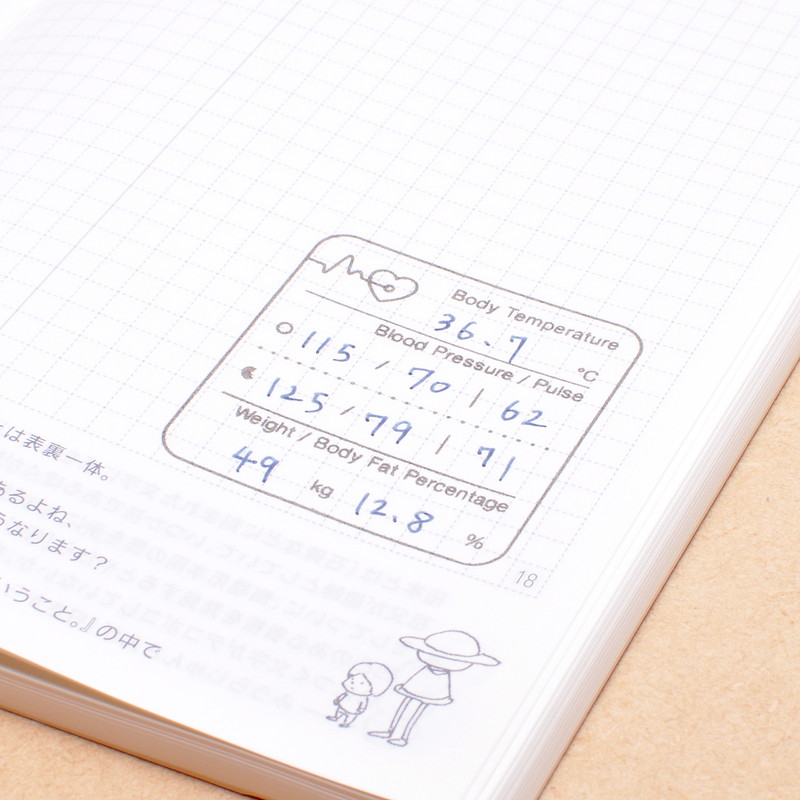 Body Temperature
36.7 °C
Blood Pressure / Pulse
115 / 70 | 62
125 / 79 | 71
Weight / Body Fat Percentage
49 kg 12.8 %
18
は表裏一体。
あるよね、
うなります？
いうこと。』の中で